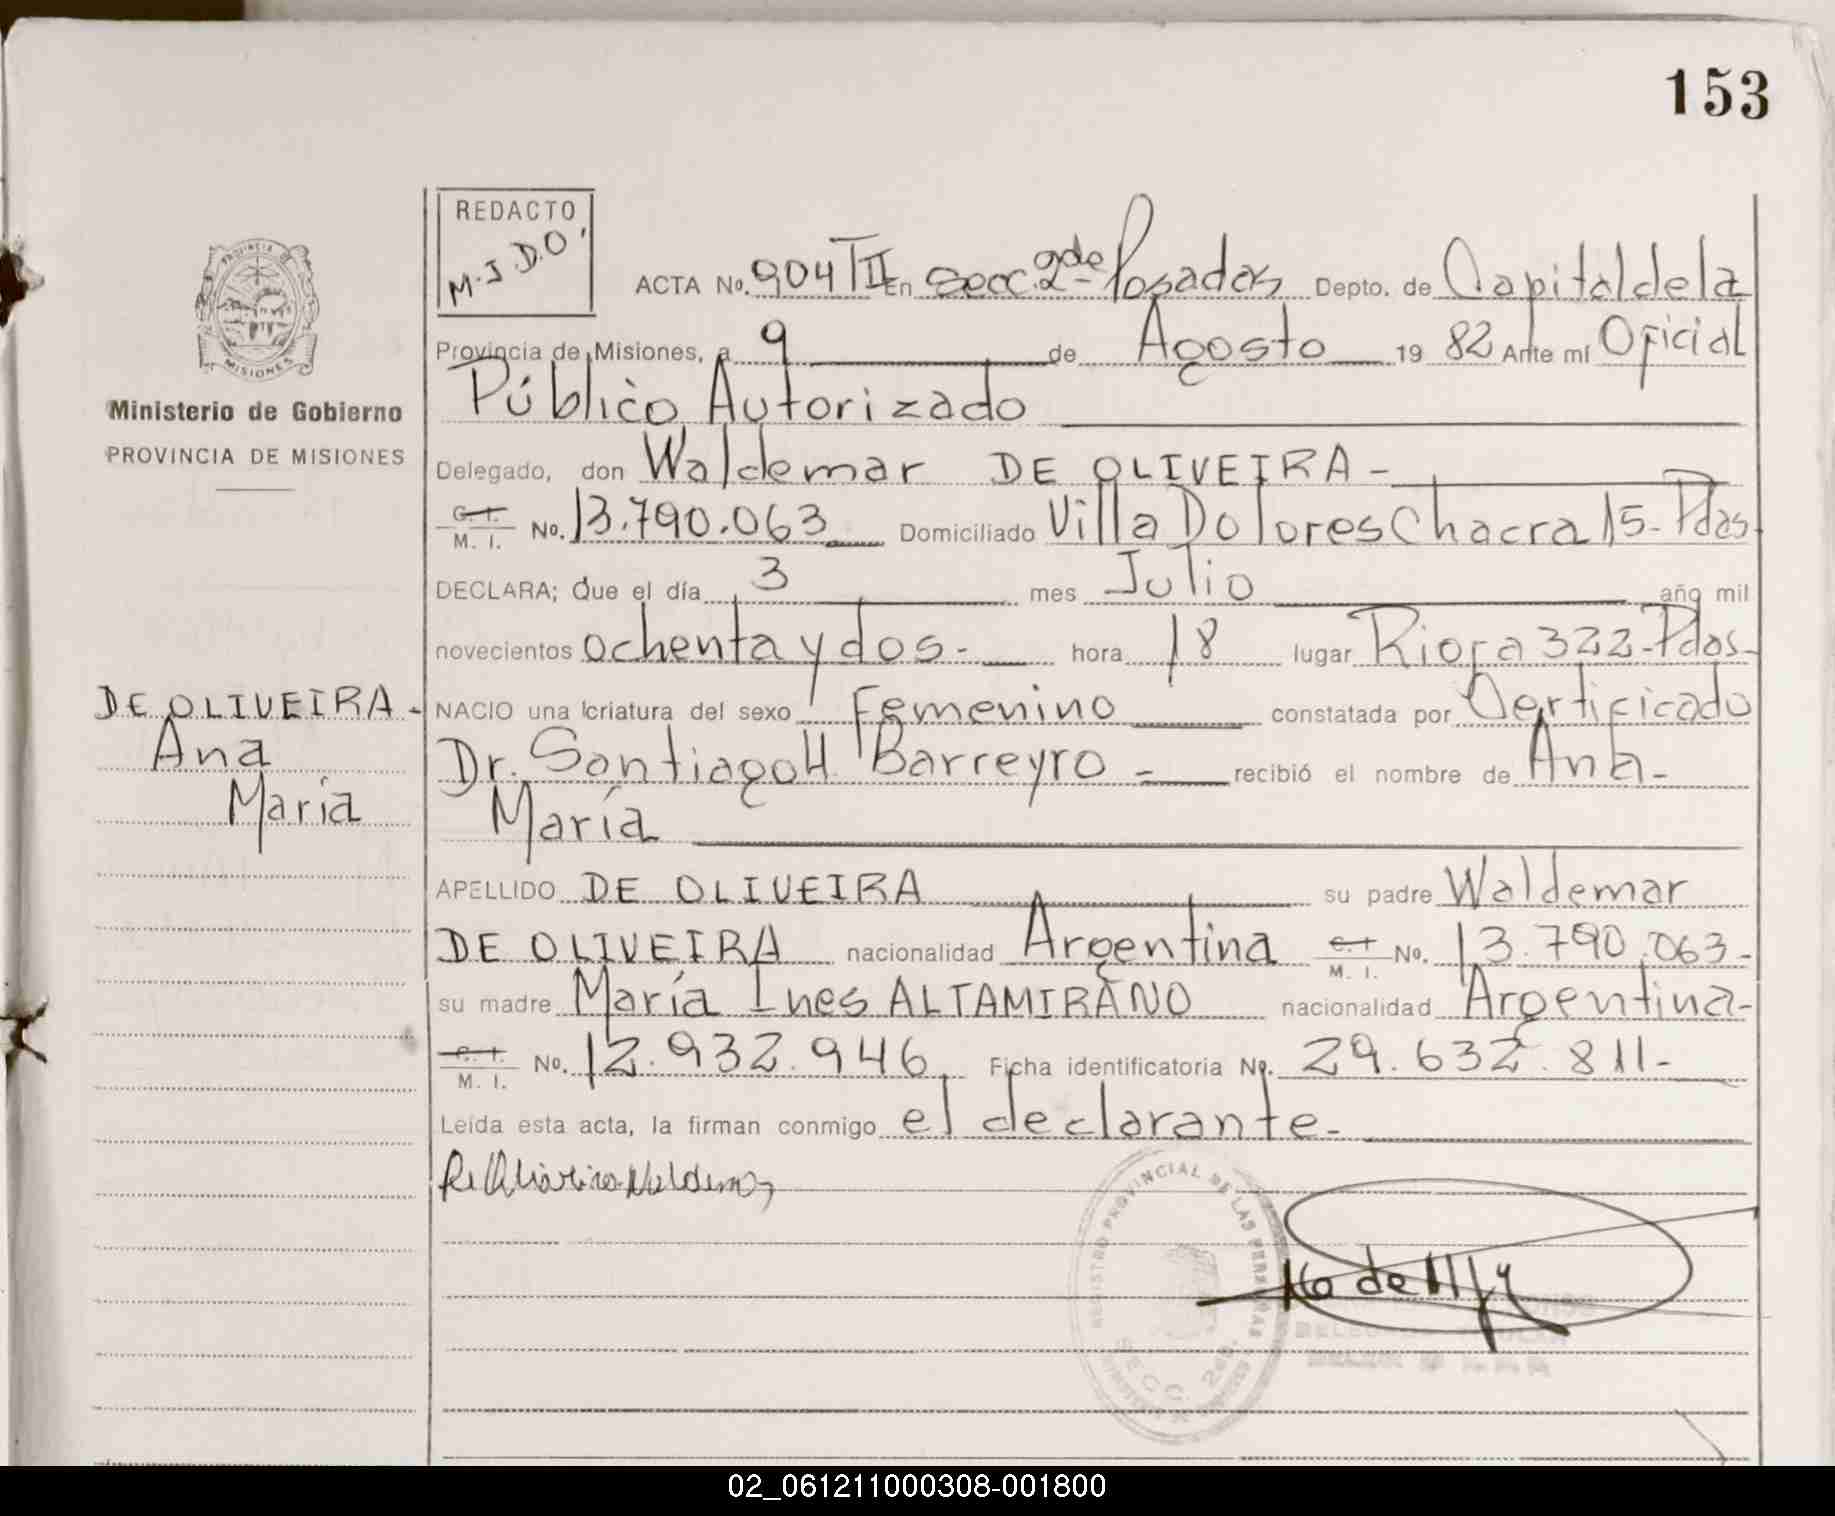 153
REDACTO
M.J.D.O.
ACTA No. 904 TII En Secc. 2da de Posadas Depto. de Capital de la
Provincia de Misiones, a 9 de Agosto 1982 Ante mí Oficial
Público Autorizado
Delegado, don Waldemar DE OLIVEIRA-
C. I. M. I. No. 13.790.063 Domiciliado Villa Dolores Chacra 15- Pdas.
DECLARA; Que el día 3 mes Julio año mil
novecientos ochenta y dos.- hora 18 lugar Rioja 322-Pdas-
NACIO una criatura del sexo Femenino constatada por Certificado
Dr. Santiago H Barreyro - recibió el nombre de Ana-
María
APELLIDO DE OLIVEIRA su padre Waldemar
DE OLIVEIRA nacionalidad Argentina C. I. M. I. No. 13.790.063-
su madre María Ines ALTAMIRANO nacionalidad Argentina-
C. I. M. I. No. 12.932.946 Ficha identificatoria No. 29.632.811-
Leída esta acta, la firman conmigo el declarante-
PROVINCIA DE
MISIONES
Ministerio de Gobierno
PROVINCIA DE MISIONES
DE OLIVEIRA-
Ana
María
REGISTRO PROVINCIAL DE LAS PERSONAS
SECC. 2da.
02_061211000308-001800